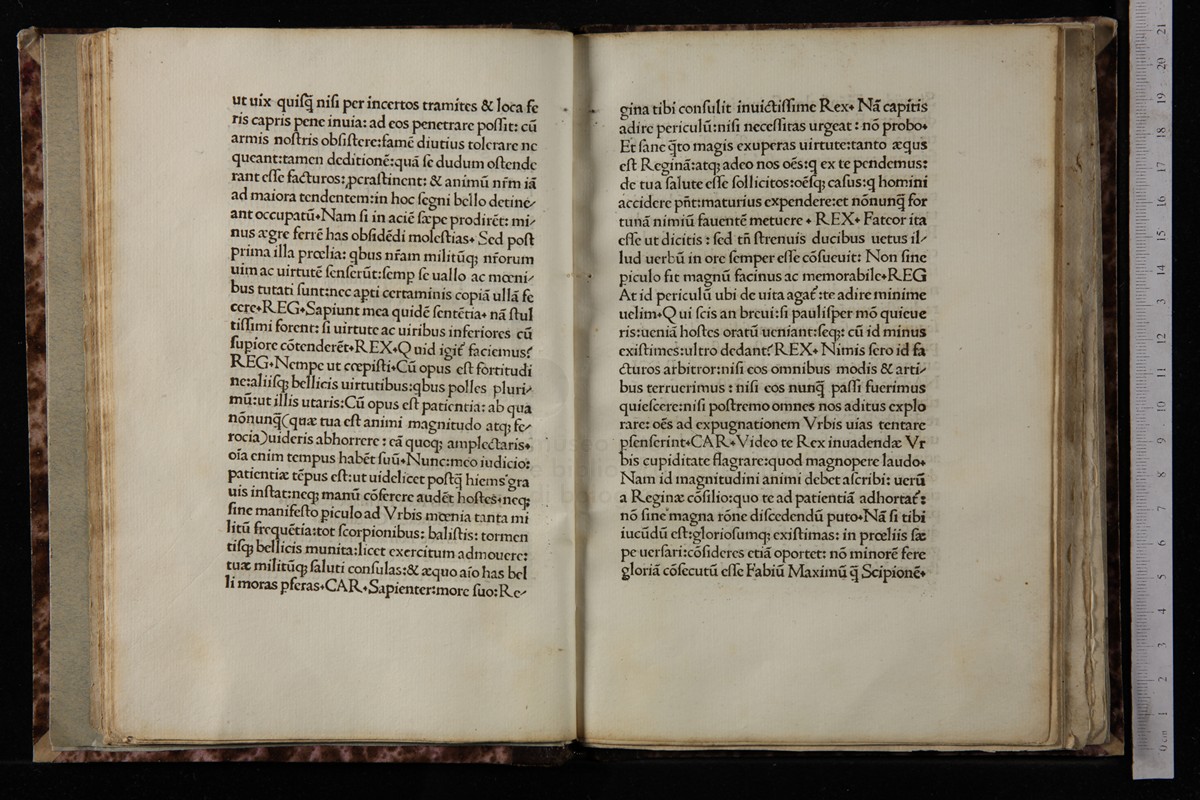 ut uix quiſq̃ niſi per incertos tramites & loca fe
ris capris pene inuia: ad eos penetrare poſſit: cū
armis noſtris obſiſtere:famē diutius tolerare ne
queant:tamen deditionē:quā ſe dudum oſtende
rant eſſe facturos:ꝓcraſtinent: & animū nr̄m iā
ad maiora tendentem:in hoc ſegni bello detine⸗
ant occupatū. Nam ſi in aciē ſæpe prodirēt: mi⸗
nus ægre ferrē has obſidēdi moleſtias. Sed poſt
prima illa prœlia: qbus nr̄am militūq; nr̄orum
uim ac uirtutē ſenſerūt:ſemꝑ ſe uallo ac mœni⸗
bus tutati ſunt:nec apti certaminis copiā ullā fe
cere. REG. Sapiunt mea quidē ſentētia. nā ſtul
tiſſimi forent: ſi uirtute ac uiribus inferiores cū
ſuꝑiore cōtenderēt. REX. Quid igit̃ faciemus?
REG. Nempe ut cœpiſti. Cū opus eſt fortitudi
ne:aliiſq; bellicis uirtutibus:qbus polles pluri⸗
mū:ut illis utaris:Cū opus eſt patientia: ab qua
nōnunq̃(quæ tua eſt animi magnitudo atq; fe⸗
rocia)uideris abhorrere: eā quoq; amplectaris.
oīa enim tempus habēt ſuū. Nunc:meo iudicio:
patientiæ tēpus eſt:ut uidelicet poſtq̃ hiems gra
uis inſtat:neq; manū cōſerere audēt hoſtes.neq;
ſine manifeſto ꝑiculo ad Vrbis mœnia tanta mi
litū frequētia:tot ſcorpionibus: baliſtis: tormen
tiſq; bellicis munita:licet exercitum admouere:
tuæ militūq; ſaluti conſulas:& æquo aīo has bel
li moras ꝑferas. CAR. Sapienter:more ſuo: Re⸗
gina tibi conſulit inuictiſſime Rex. Nā capitis
adire periculū:niſi neceſſitas urgeat: nō probo.
Et ſane q̃to magis exuperas uirtute:tanto æqus
eſt Reginā:atq; adeo nos oēs:q ex te pendemus:
de tua ſalute eſſe ſollicitos:oēſq; caſus:q homini
accidere pn̄t:maturius expendere:et nōnunq̃ for
tunā nimiū fauentē metuere. REX. Fateor ita
eſſe ut dicitis: ſed tn̄ ſtrenuis ducibus uetus il⸗
lud uerbū in ore ſemper eſſe cōſueuit: Non ſine
ꝑiculo fit magnū facinus ac memorabile. REG
At id periculū ubi de uita agat̃:te adire minime
uelim. Qui ſcis an breui:ſi pauliſper mō quieue
ris:ueniā hoſtes oratū ueniant:ſeq;: cū id minus
exiſtimes:ultro dedant? REX. Nimis ſero id fa
cturos arbitror:niſi eos omnibus modis & arti⸗
bus terruerimus: niſi eos nunq̃ paſſi fuerimus
quieſcere:niſi poſtremo omnes nos aditus explo
rare: oēs ad expugnationem Vrbis uias tentare
ꝑſenſerint. CAR. Video te Rex inuadendæ Vr
bis cupiditate flagrare:quod magnopere laudo.
Nam id magnitudini animi debet aſcribi: uerū
a Reginæ cōſilio:quo te ad patientiā adhortat̃:
nō ſine magna rōne diſcedendū puto. Nā ſi tibi
iucūdū eſt:glorioſumq; exiſtimas: in prœliis ſæ
pe uerſari:cōſideres etiā oportet: nō minorē fere
gloriā cōſecutū eſſe Fabiū Maximū q̃ Scipionē.